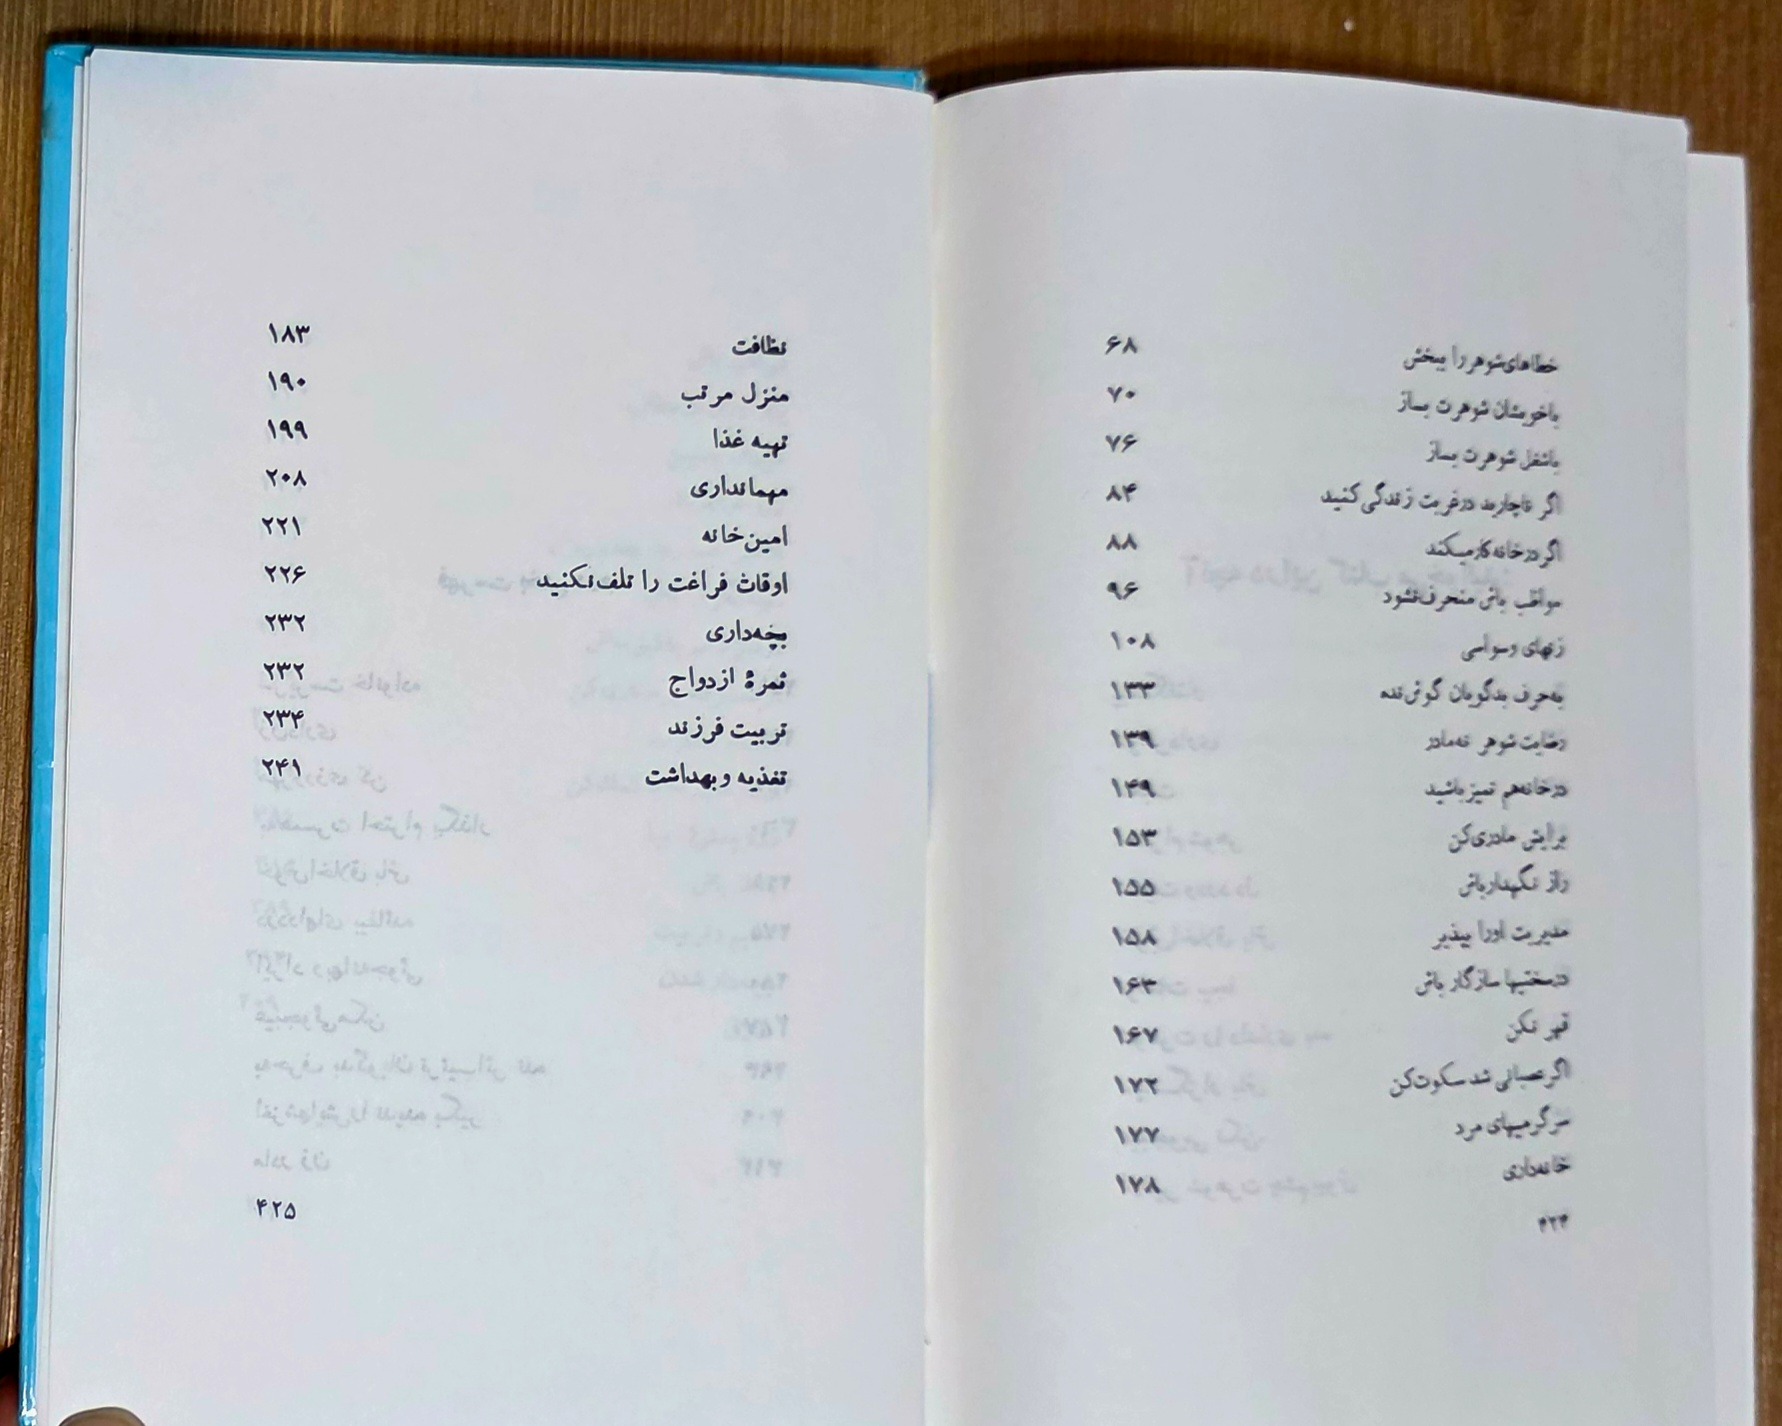 خطاهای شوهر را ببخش ۶۸
باخویشان شوهرت بساز ۷۰
باشغل شوهرت بساز ۷۶
اگر ناچارید در غربت زندگی کنید ۸۴
اگر در خانه کار میکند ۸۸
مواظب باش منحرف نشود ۹۶
زنهای وسواسی ۱۰۸
به حرف بدگویان گوش نده ۱۳۳
رضایت شوهر نه مادر ۱۳۹
در خانه هم تمیز باشید ۱۴۹
برایش مادری کن ۱۵۳
راز نگهدار باش ۱۵۵
مدیریت او را بپذیر ۱۵۸
در سختیها سازگار باش ۱۶۳
قهر نکن ۱۶۷
اگر عصبانی شد سکوت کن ۱۷۲
سرگرمیهای مرد ۱۷۷
خانه‌داری ۱۷۸
۴۲۴
نظافت ۱۸۳
منزل مرتب ۱۹۰
تهیه غذا ۱۹۹
مهمانداری ۲۰۸
امین خانه ۲۲۱
اوقات فراغت را تلف نکنید ۲۲۶
بچه‌داری ۲۳۲
ثمرهٔ ازدواج ۲۳۲
تربیت فرزند ۲۳۴
تغذیه و بهداشت ۲۴۱
۴۲۵